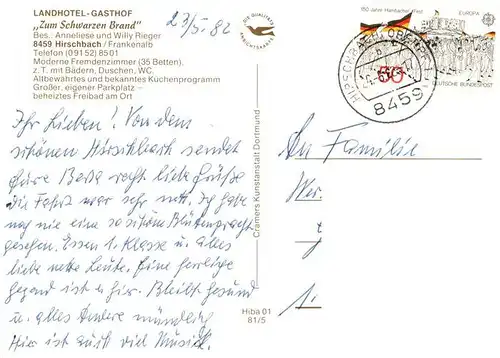 LANDHOTEL-GASTHOF
„Zum Schwarzen Brand"
Bes.: Anneliese und Willy Rieger
8459 Hirschbach/Frankenalb
Telefon (09152) 8501
Moderne Fremdenzimmer (35 Betten),
z. T. mit Bädern, Duschen, WC.
Altbewährtes und bekanntes Küchenprogramm
Großer, eigener Parkplatz –
beheiztes Freibad am Ort
23/5. 82
DIE QUALITÄTS
ANSICHTSKARTE
150 Jahre Hambacher Fest
EUROPA
50
DEUTSCHE BUNDESPOST
HIRSCHBACH, OBERPF
8459
Ihr Lieben! Von dem
schönen Hirschbach sendet
Eure recht liebe Grüße
Die Fahrt war sehr nett. Ich habe
noch nie eine so schöne Blütenpracht
gesehen. Essen 1. Klasse u. alles
liebe nette Leute. Eine herrliche
Gegend ist es hier. Bleibt gesund
u. alles Andere mündlich
Hier ist auch viel Musik.
Cramers Kunstanstalt Dortmund
Hiba 01
81/5
An Familie
Wer
1.